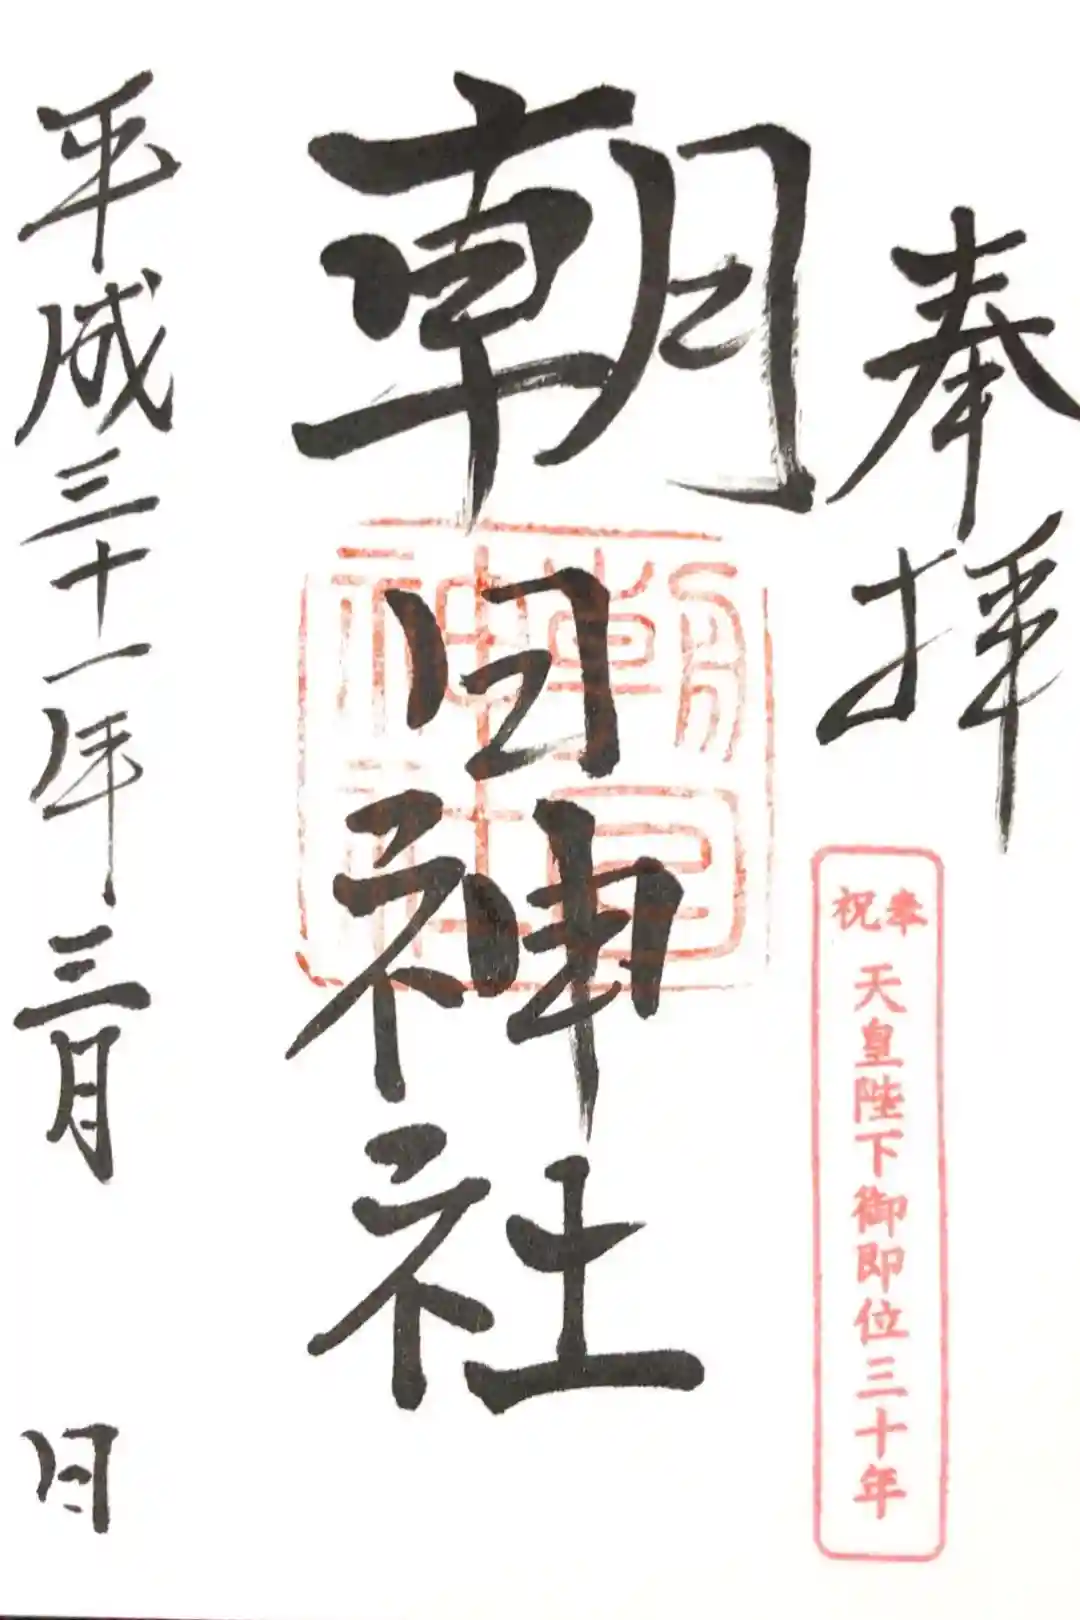 奉拝
奉祝
天皇陛下御即位三十年
朝日神社
朝日
神社
平成三十一年三月 日